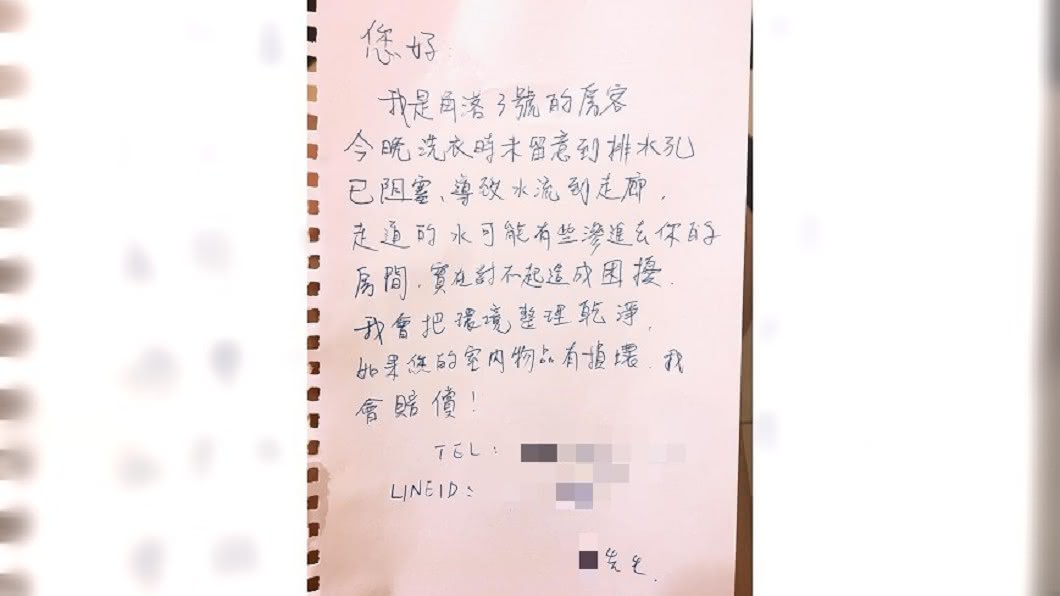 您好:
我是角落3號的房客
今晚洗衣時未留意到排水孔
已阻塞、導致水流到走廊,
走道的水可能有些滲進去你的
房間,實在對不起造成困擾.
我會把環境整理乾淨,
如果您的室內物品有損壞.我
會賠償!
TEL:
LINEID:
先生.